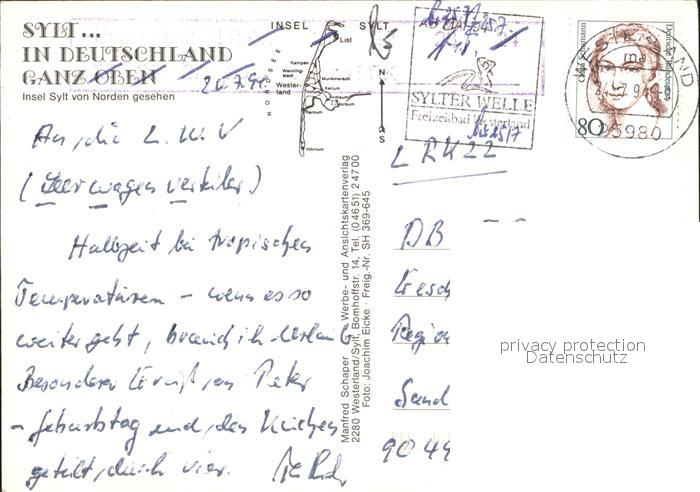 SYLT...
IN DEUTSCHLAND
GANZ OBEN
Insel Sylt von Norden gesehen
20.7.94
INSEL SYLT
NORDSEE
List
Kampen
Wenningstedt
Munkmarsch
Westerland
Keitum
Rantum
Hörnum
N
S
SYLTER WELLE
Freizeitbad Westerland
Clara Schumann
Deutsche Bundespost
80
25980
An die L.W.V
(Leerwagen verteiler)
Halbzeit bei tropischen
Temperaturen – wenn es so
weiter geht, brauch ich Urlaub
Besonderer Gruß an Peter
– Geburtstag und den Kuchen
geteilt durch vier.
LRK22
DB
Gesch
Region
Sand
9044
Manfred Schaper · Werbe- und Ansichtskartenverlag
2280 Westerland/Sylt, Bomhoffstr. 14, Tel. (04651) 24700
Foto: Joachim Eicke · Freig.-Nr. SH 369-645
privacy protection
Datenschutz